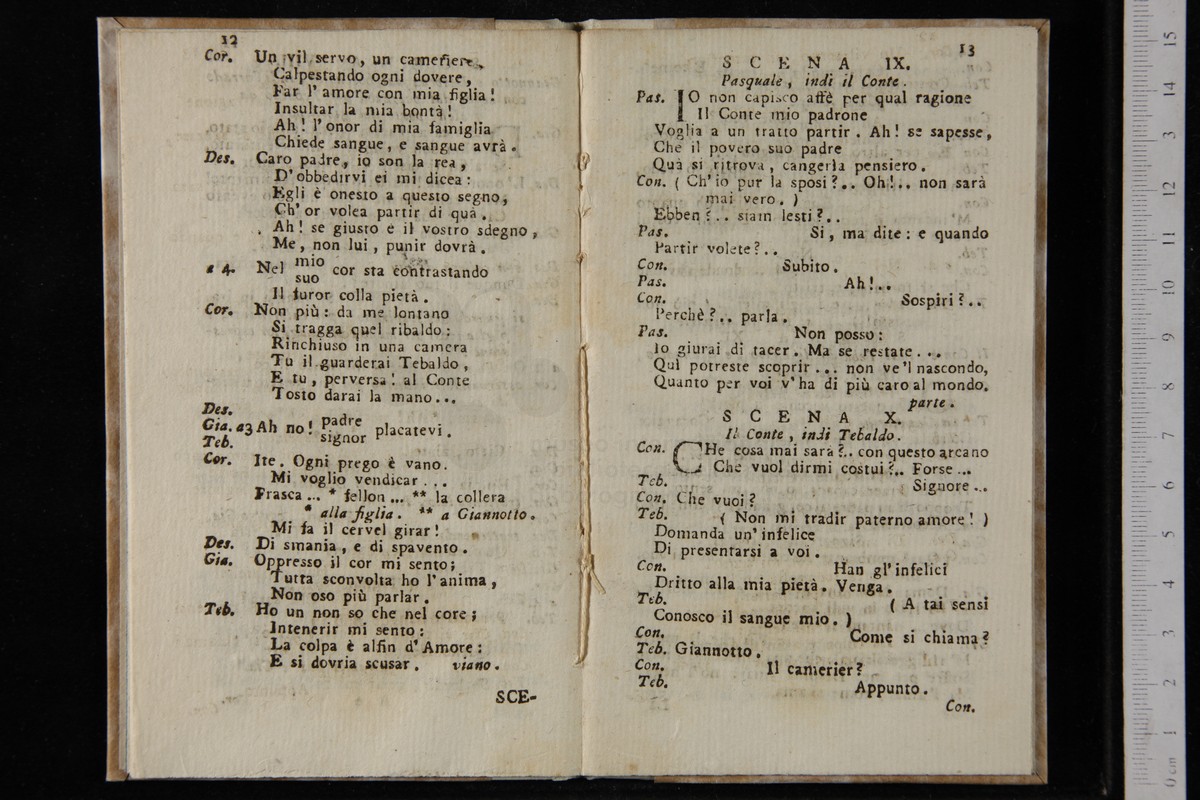 12
Cor. Un vil servo, un cameriere,
Calpestando ogni dovere,
Far l'amore con mia figlia!
Insultar la mia bontà!
Ah! l'onor di mia famiglia
Chiede sangue, e sangue avrà.
Des. Caro padre, io son la rea,
D'obbedirvi ei mi dicea:
Egli è onesto a questo segno,
Ch'or volea partir di quà.
Ah! se giusto è il vostro sdegno,
Me, non lui, punir dovrà.
a 4. Nel mio suo cor sta contrastando
Il furor colla pietà.
Cor. Non più: da me lontano
Si tragga quel ribaldo:
Rinchiuso in una camera
Tu il guarderai Tebaldo,
E tu, perversa! al Conte
Tosto darai la mano...
Des.
Gia. a3 Ah no! padre signor placatevi.
Teb.
Cor. Ite. Ogni prego è vano.
Mi voglio vendicar...
Frasca... * fellon... ** la collera
* alla figlia. ** a Giannotto.
Mi fa il cervel girar!
Des. Di smania, e di spavento.
Gia. Oppresso il cor mi sento;
Tutta sconvolta ho l'anima,
Non oso più parlar.
Teb. Ho un non so che nel core;
Intenerir mi sento:
La colpa è alfin d'Amore:
E si dovria scusar. viano.
SCE-
13
SCENA IX.
Pasquale, indi il Conte.
Pas. IO non capisco affè per qual ragione
Il Conte mio padrone
Voglia a un tratto partir. Ah! se sapesse,
Che il povero suo padre
Quà si ritrova, cangeria pensiero.
Con. (Ch'io pur la sposi?.. Oh!.. non sarà
mai vero.)
Ebben?.. siam lesti?..
Pas. Si, ma dite: e quando
Partir volete?..
Con. Subito.
Pas. Ah!..
Con. Sospiri?..
Perchè?.. parla.
Pas. Non posso:
Io giurai di tacer. Ma se restate...
Quì potreste scoprir... non ve'l nascondo,
Quanto per voi v'ha di più caro al mondo.
parte.
SCENA X.
Il Conte, indi Tebaldo.
Con. CHe cosa mai sarà?.. con questo arcano
Che vuol dirmi costui?.. Forse...
Teb. Signore...
Con. Che vuoi?
Teb. (Non mi tradir paterno amore!)
Domanda un'infelice
Di presentarsi a voi.
Con. Han gl'infelici
Dritto alla mia pietà. Venga.
Teb. (A tai sensi
Conosco il sangue mio.)
Con. Come si chiama?
Teb. Giannotto.
Con. Il camerier?
Teb. Appunto.
Con.
15
14
13
12
11
10
9
8
7
6
5
4
3
2
1
0 cm